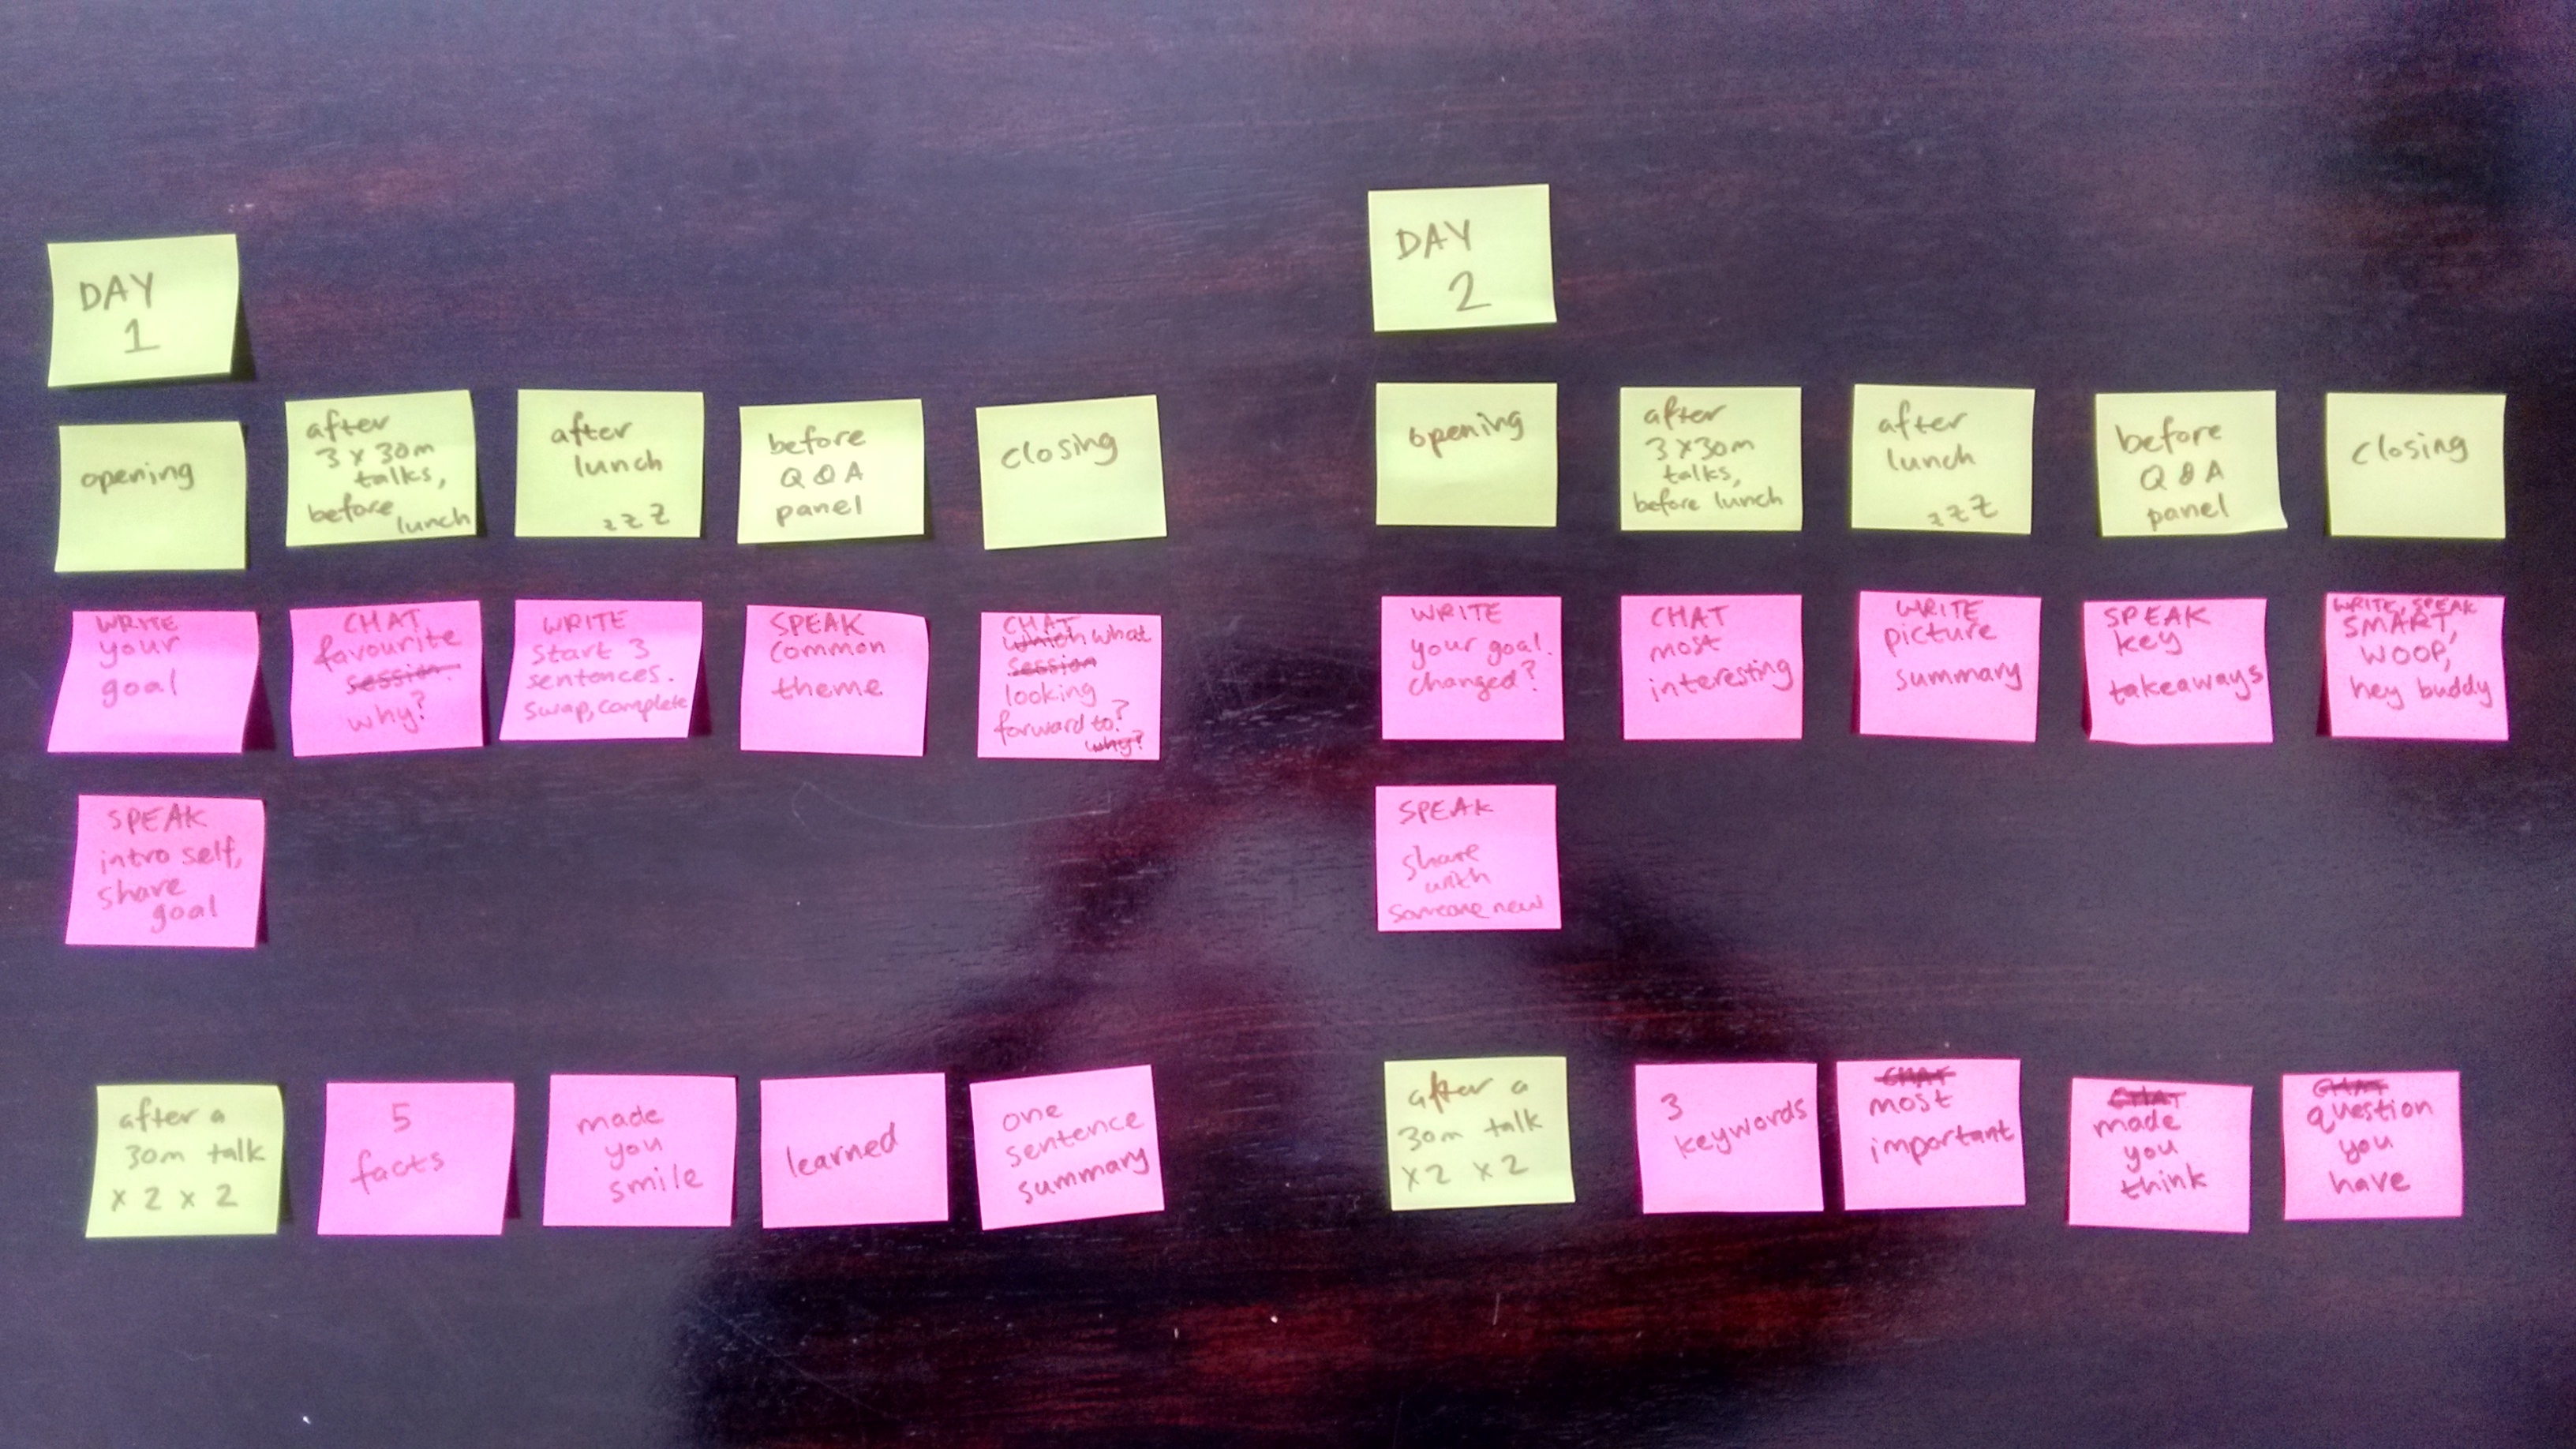 DAY
1
opening
after
3 x 30m
talks,
before
lunch
after
lunch
z z Z
before
Q & A
panel
closing
WRITE
your
goal
CHAT
favourite
session.
why?
WRITE
start 3
sentences.
swap, complete
SPEAK
common
theme
CHAT
which what
session
looking
forward to?
why?
SPEAK
intro self,
share
goal
after a
30m talk
x 2 x 2
5
facts
made
you
smile
learned
one
sentence
summary
DAY
2
opening
after
3 x 30m
talks,
before lunch
after
lunch
z z Z
before
Q & A
panel
closing
WRITE
your goal.
changed?
CHAT
most
interesting
WRITE
picture
summary
SPEAK
key
takeaways
WRITE, SPEAK
SMART,
WOOP,
hey buddy
SPEAK
share
with
someone new
after a
30m talk
x 2 x 2
3
keywords
CHAT
most
important
CHAT
made
you
think
CHAT
question
you
have